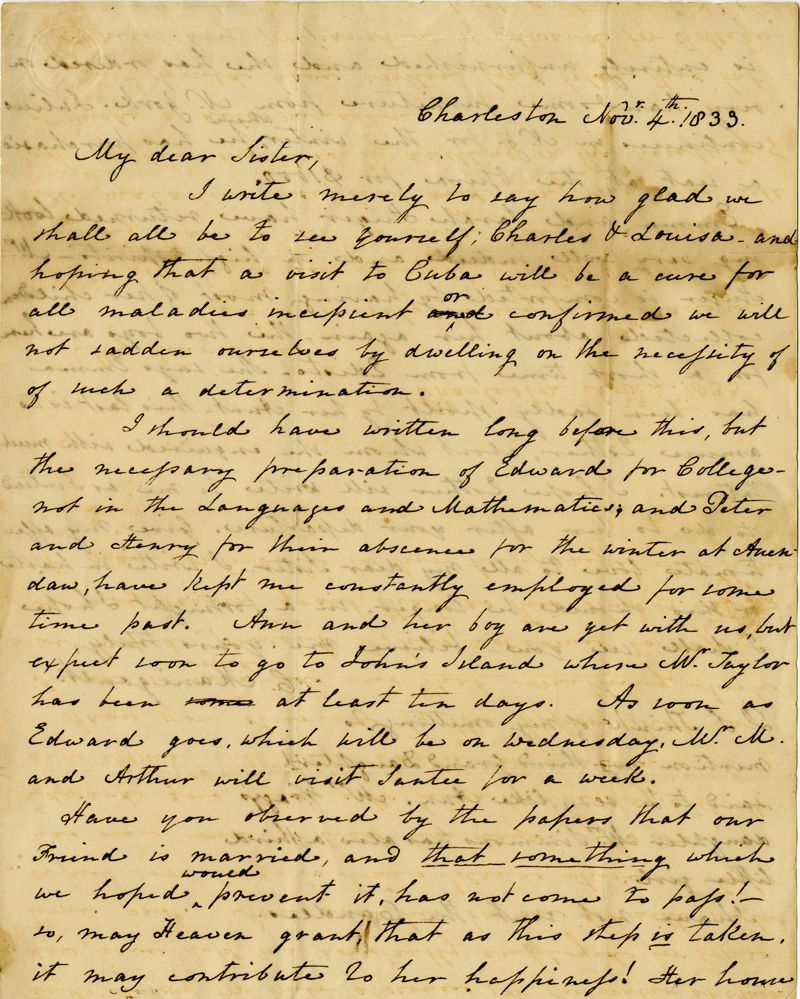 Charleston Novr. 4th. 1833.
My dear Sister,
I write merely to say how glad we
shall all be to see yourself, Charles & Louisa - and
hoping that a visit to Cuba will be a cure for
all maladies incipient and or confirmed we will
not sadden ourselves by dwelling on the necessity of
of such a determination.
I should have written long before this, but
the necessary preparation of Edward for College -
not in the Languages and Mathematics; and Peter
and Henry for their absence for the winter at Awen-
daw, have kept me constantly employed for some
time past. Ann and her boy are yet with us, but
expect soon to go to John's Island where Mr. Taylor
has been some at least ten days. As soon as
Edward goes, which will be on Wednesday, Mr. M.
and Arthur will visit Santee for a week.
Have you observed by the papers that our
Friend is married, and that something which
we hoped would prevent it, has not come to pass! -
so, may Heaven grant, that as this step is taken,
it may contribute to her happiness! Her house